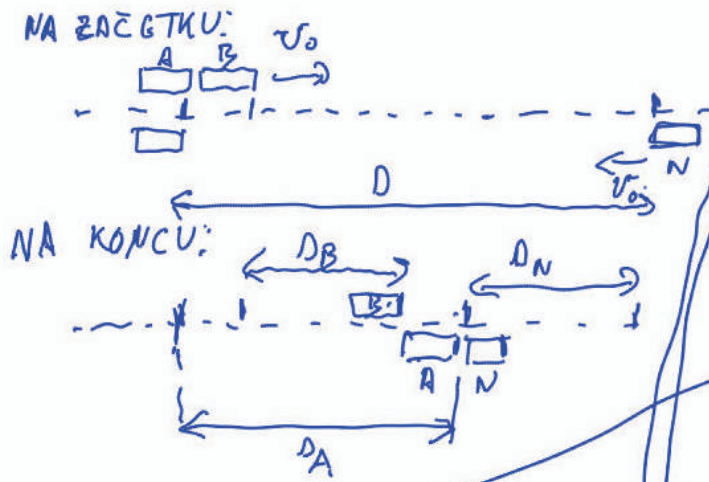 NA ZAČETKU:
A B v₀
N
D v₀
NA KONCU:
D_B D_N
B
A N
D_A